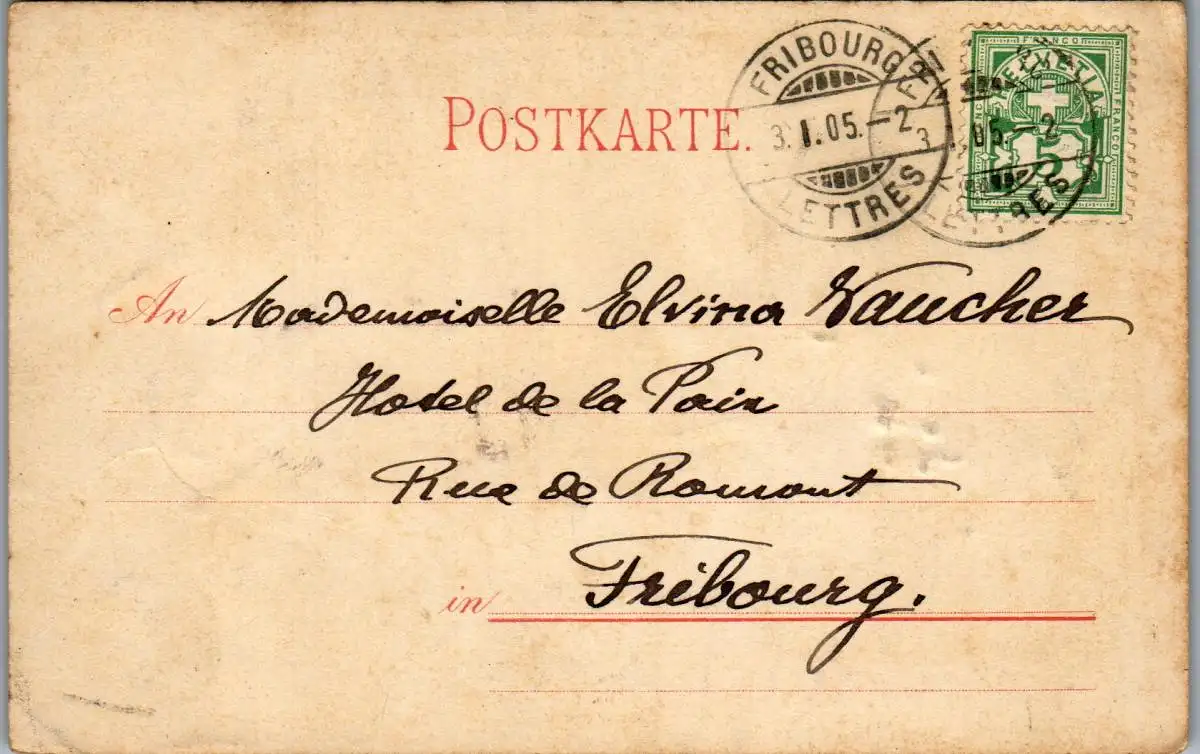 POSTKARTE.
FRIBOURG
3. I. 05. – 2
LETTRES
FRANCO
HELVETIA
FRANCO
5
3 05. – 2
LETTRES
An Mademoiselle Elvina Vaucher
Hotel de la Paix
Rue de Romont
in Fribourg.